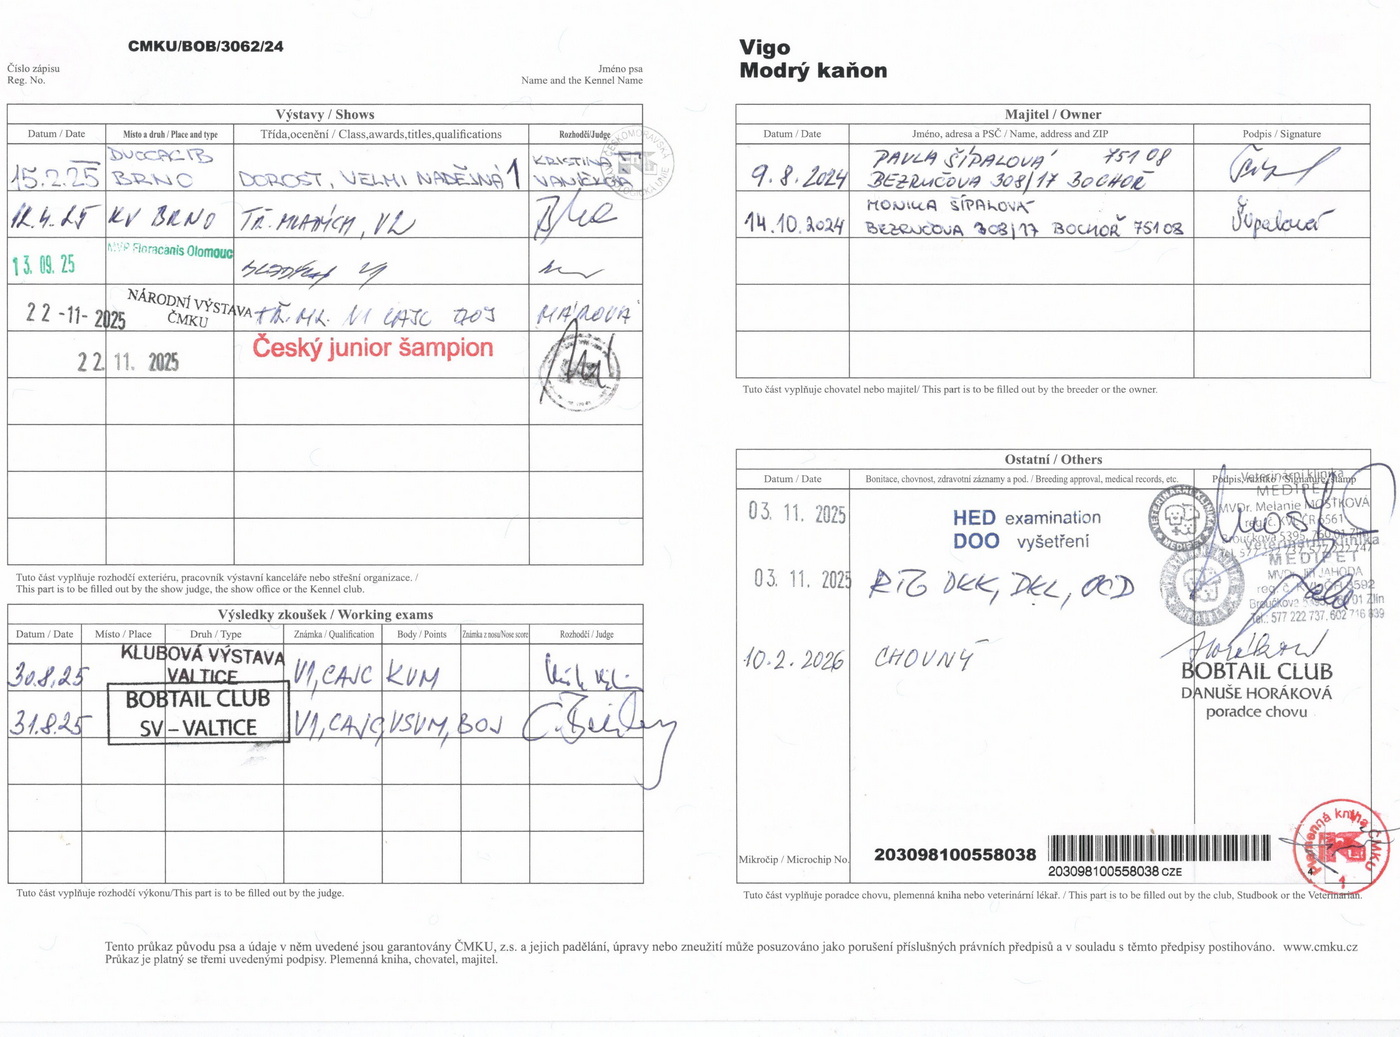 CMKU/BOB/3062/24
Číslo zápisu
Reg. No.
Jméno psa
Name and the Kennel Name
Výstavy / Shows
Datum / Date
Místo a druh / Place and type
Třída,ocenění / Class,awards,titles,qualifications
Rozhodčí/Judge
15.2.25
DUOCACIB
BRNO
DOROST, VELMI NADĚJNÁ 1
KRISTINA
VANÍČKOVÁ
12.4.25
KV BRNO
TŘ. MLADÝCH, V2
13. 09. 25
MVP Floracanis Olomouc
22 -11- 2025
NÁRODNÍ VÝSTAVA
ČMKU
TŘ. ML. V1 CAJC BOJ
22. 11. 2025
Český junior šampion
Tuto část vyplňuje rozhodčí exteriéru, pracovník výstavní kanceláře nebo střešní organizace. /
This part is to be filled out by the show judge, the show office or the Kennel club.
Výsledky zkoušek / Working exams
Datum / Date
Místo / Place
Druh / Type
Známka / Qualification
Body / Points
Známka z nosu/Nose score
Rozhodčí / Judge
30.8.25
KLUBOVÁ VÝSTAVA
VALTICE
V1, CAJC KVM
31.8.25
BOBTAIL CLUB
SV – VALTICE
V1, CAJC, VSVM, BOJ
Tuto část vyplňuje rozhodčí výkonu/This part is to be filled out by the judge.
Vigo
Modrý kaňon
Majitel / Owner
Datum / Date
Jméno, adresa a PSČ / Name, address and ZIP
Podpis / Signature
9. 8. 2024
PAVLA ŠÍPALOVÁ 751 08
BEZRUČOVA 308/17 BOCHOŘ
14.10.2024
MONIKA ŠÍPALOVÁ
BEZRUČOVA 308/17 BOCHOŘ 751 08
Šípalová
Tuto část vyplňuje chovatel nebo majitel/ This part is to be filled out by the breeder or the owner.
Ostatní / Others
Datum / Date
Bonitace, chovnost, zdravotní záznamy a pod. / Breeding approval, medical records, etc.
03. 11. 2025
HED examination
DOO vyšetření
Veterinární klinika
MEDIPET
MVDr. Melanie MOSTKOVÁ
03. 11. 2025
RTG DKK, DKL, OCD
Veterinární klinika
MEDIPET
Tel.: 577 222 737, 602 716 839
10. 2. 2026
CHOVNÝ
BOBTAIL CLUB
DANUŠE HORÁKOVÁ
poradce chovu
Mikročip / Microchip No.
203098100558038
203098100558038 CZE
Plemenná kniha ČMKU
1
Tuto část vyplňuje poradce chovu, plemenná kniha nebo veterinární lékař. / This part is to be filled out by the club, Studbook or the Veterinarian.
Tento průkaz původu psa a údaje v něm uvedené jsou garantovány ČMKU, z.s. a jejich padělání, úpravy nebo zneužití může posuzováno jako porušení příslušných právních předpisů a v souladu s těmto předpisy postihováno. www.cmku.cz
Průkaz je platný se třemi uvedenými podpisy. Plemenná kniha, chovatel, majitel.